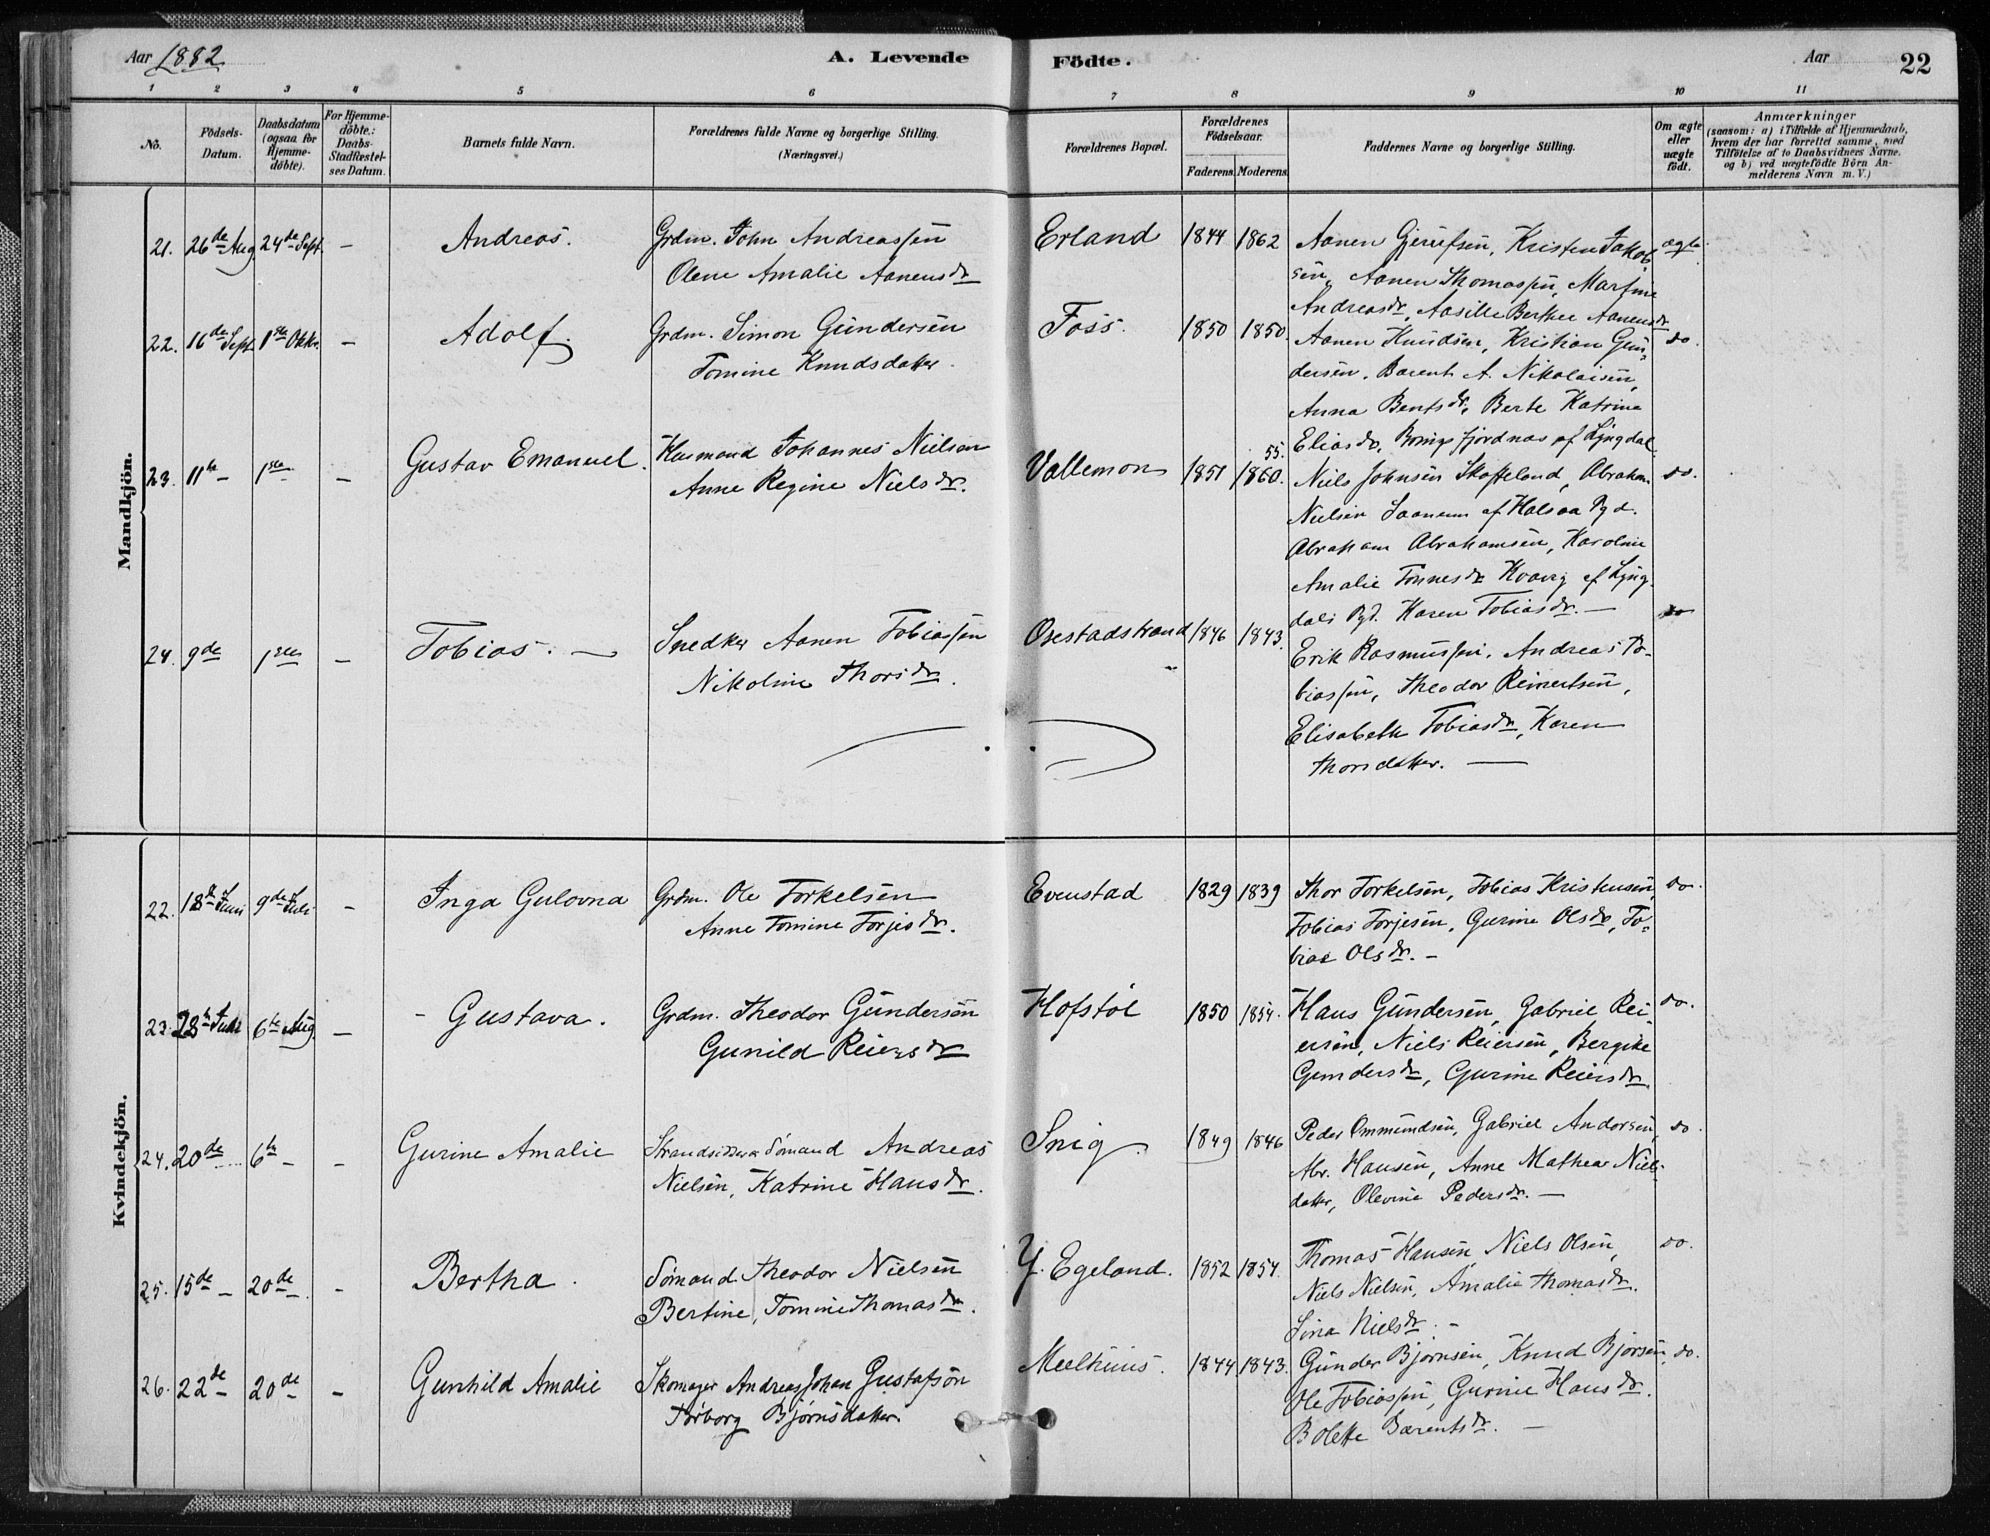 Aar 1882 A. Levende Födte. Aar 22
1 2 3 4 5 6 7 8 9 10 11
No. Födsels-Datum. Daabsdatum (ogsaa for Hjemme-döbte). For Hjemme-döbte.: Daabs-Stadfæstel-ses Datum. Barnets fulde Navn. Forældrenes fulde Navne og borgerlige Stilling. (Næringsvei.) Forældrenes Bopæl. Forældrenes Födselsaar. Faderens. Moderens. Faddernes Navne og borgerlige Stilling. Om ægte eller uægte födt. Anmærkninger
(saasom: a) i Tilfælde af Hjemmedaab, hvem der har forrettet samme, med Tilföielse af to Daabsvidners Navne. og b) ved uægtefödte Börn An-melderens Navn m. V.)
Mandkjön.
21. 26de Aug 24de Sept. — Andreas. Grdm. John Andreassen Erland 1844 1862 Aanen Gjerufsen, Kristen Jakob ægte
Olene Amalie Aanensdr sen, Aanen Thomassen, Martine
Andreasdr, Aasille Berthee Aanensdr
22. 16de Sept 1ste Oktr. — Adolf. Grdm. Simon Gundersen Foss. 1850 1850. Aanen Knudsen, Kristian Gun- do.
Tomine Knudsdatter. dersen. Barent A. Nikolaisen,
Anna Bentsdr, Berte Katrine
55. Eliasdr, fjordnæs af Lyngdal
23. 11te — 1ste — Gustav Emanuel. Husmand Johannes Nielsen Vallemon 1851 1860. Niels Johnsen Skofteland, Abraham do.
Anne Regine Nielsdr. Nielsen af Halsaa Pgd.
Abraham Abrahamsen, Karoline
Amalie Tønnesdr Kvavig af Lyng-
dals Pgd. Karen Tobiasdr. —
24. 9de 1ste — Tobias. — Snedker Aanen Tobiassen Osestadstrand 1846 1843. do
Nikoline Thorsdr. Erik Rasmussen, Andreas To-
biassen, Theodor Reinertsen,
Elisabeth Tobiasdr, Karen
Thorsdatter. —
Kvindekjön.
22. 18de Juni 9de Juli — Inga Gulovna Grdm. Ole Torkelsen Evenstad 1829 1839 Thor Torkelsen, Tobias Kristensen, do.
Anne Tomine Torjesdr. Tobias Torjesen, Gurine Olsdr, To-
bias Olsdr. —
23. 28de Juli 6te Aug. — Gustava. Grdm. Theodor Gundersen Hofstøl 1850 1854. Hans Gundersen, Gabriel Rei- do.
Gunild Reiersdr ersen, Niels Reiersen, Bergitte
Gundersdr, Gurine Reiersdr
24. 20de 6te — — Gurine Amalie Strandsidder & Sømand Andreas Snig. 1849 1846 Peder Ommundsen, Gabriel Andersen, do.
Nielsen, Katrine Hansdr. Abr. Hansen, Anne Mathea Niels-
datter, Olevine Pedersdr. —
25. 15de — 20de — Bertha. Sømand Theodor Nielsen Y. Egeland. 1852 1854. Thomas Hansen, Niels Olsen, do.
Bertine, Tomine Thomasdr. Niels Nielsen, Amalie Thomasdr.
Sina Nielsdr. —
26. 22de 20de — Gunhild Amalie Skomager Andreas Johan Gustafsøn Meelhuus. 1844 1843. Gunder Bjørnsen, Knud Bjørsen, do.
Torborg Bjørnsdatter. Ole Tobiassen, Gurine Hansdr.
Bolette Barentsdr. —